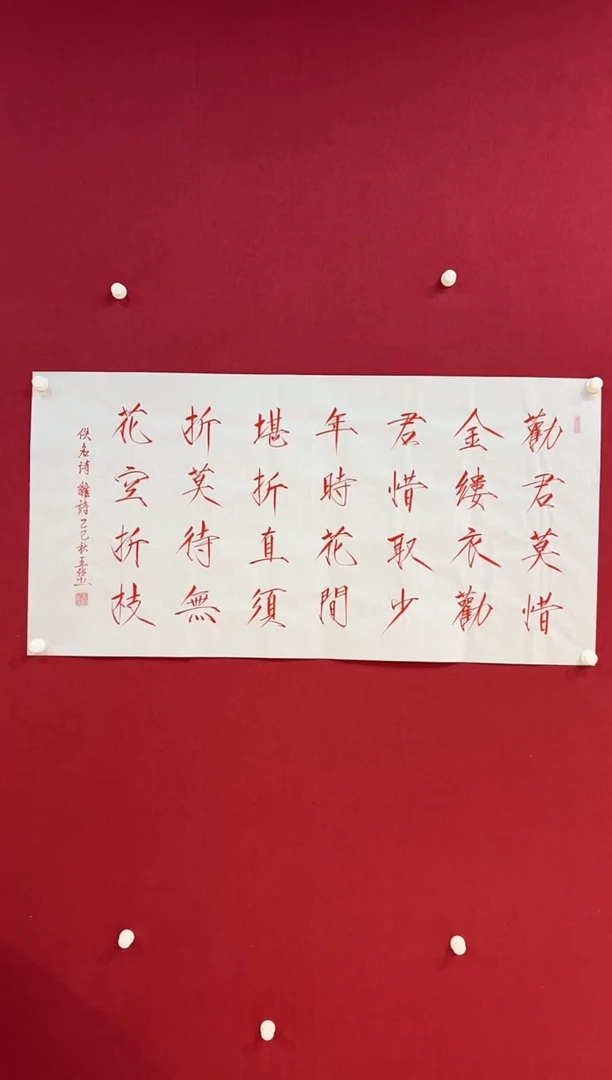 勸君莫惜
金縷衣勸
君惜取少
年時花間
堪折直須
折莫待無
花空折枝
佚名詩 雜詩 乙巳秋